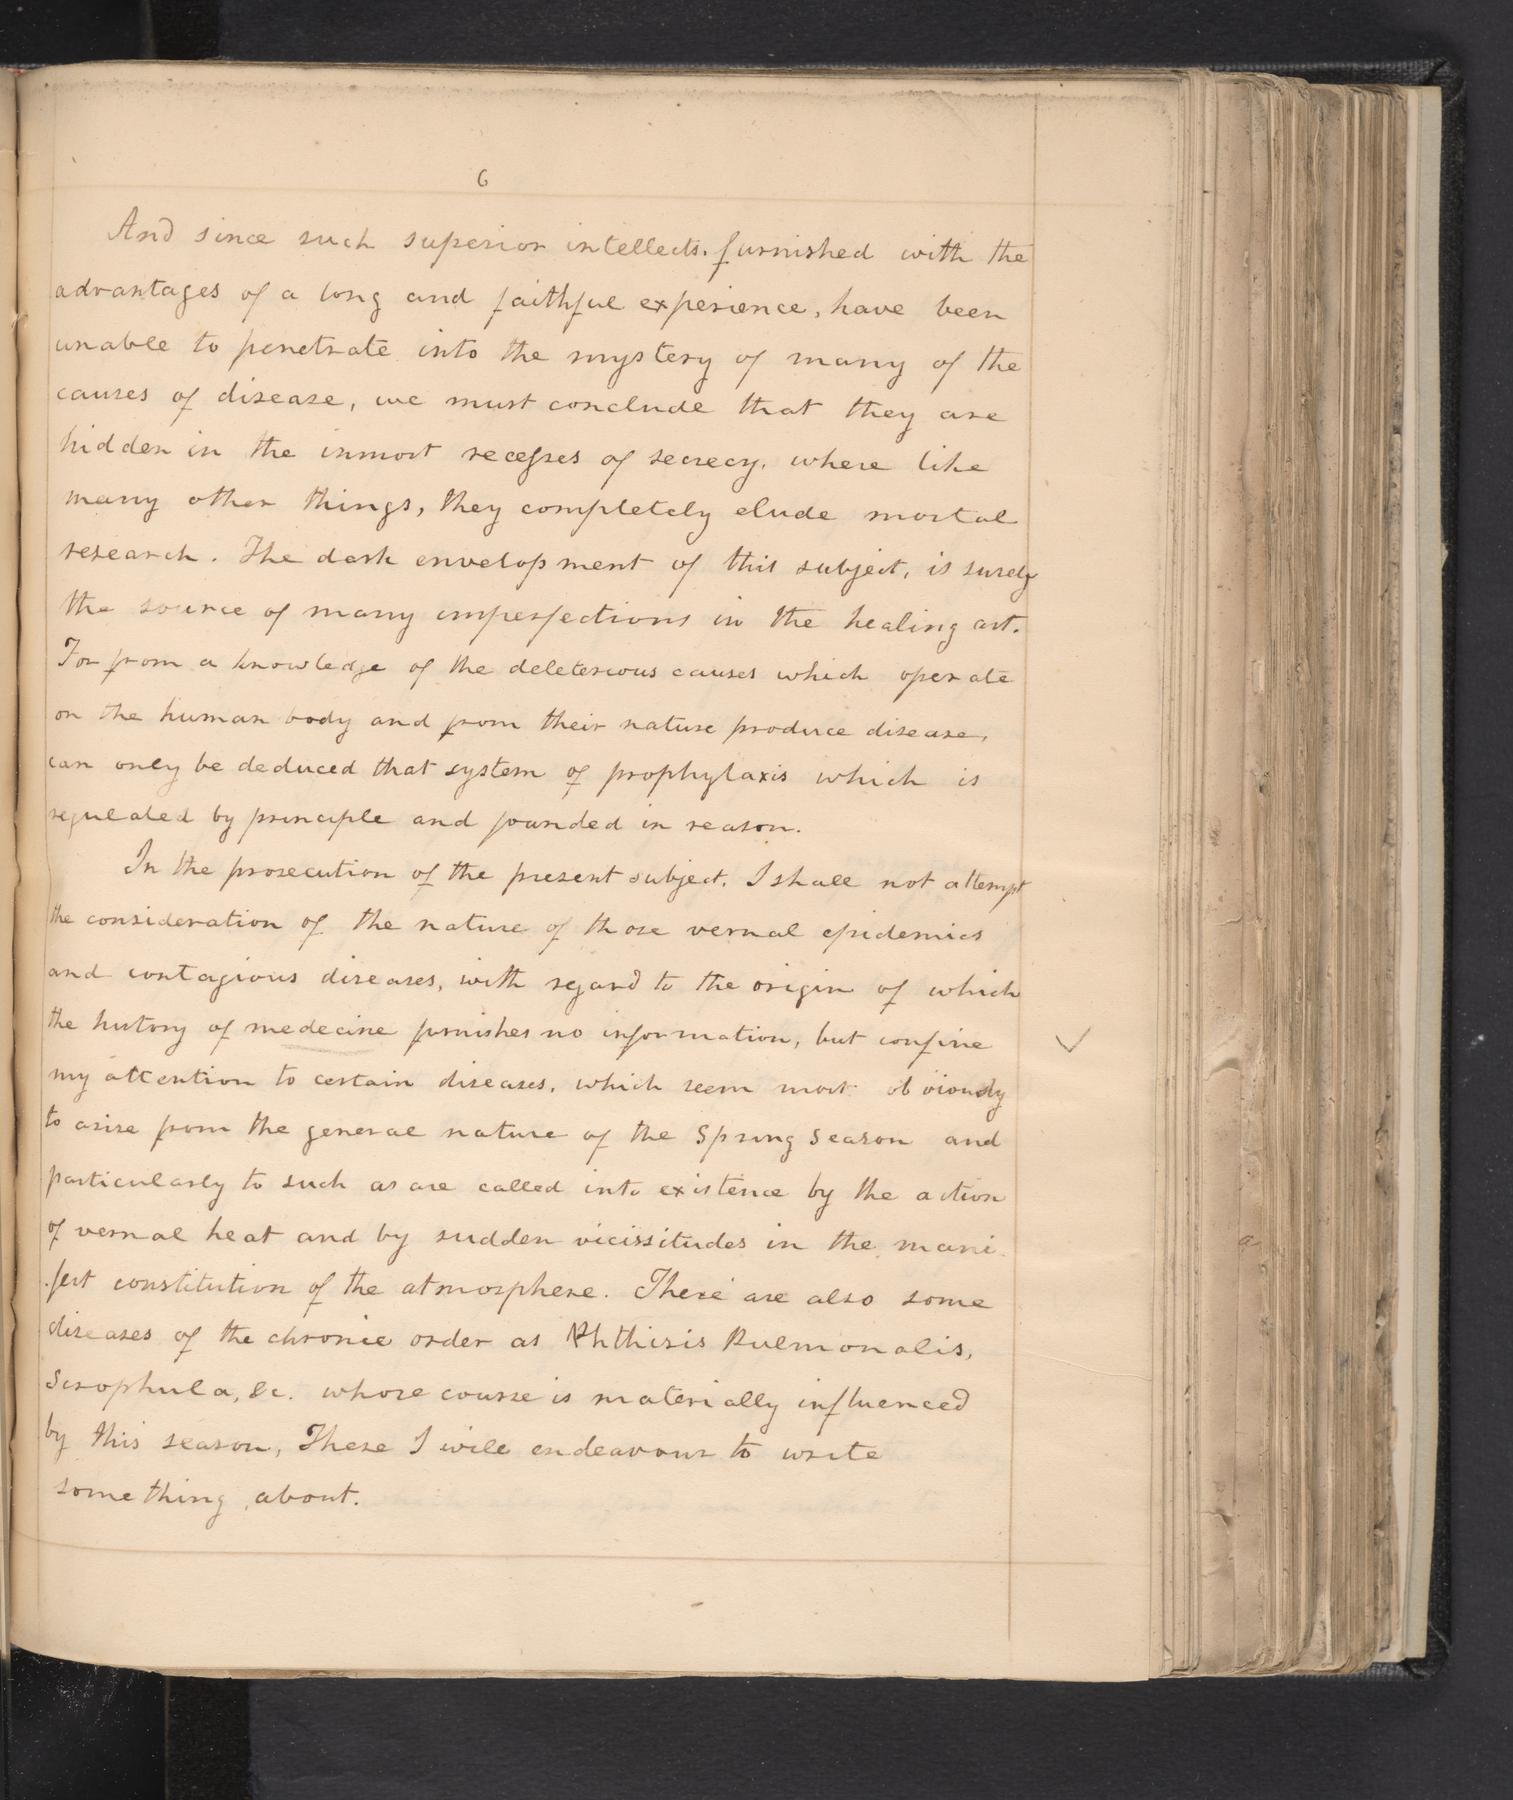 6
And since such superior intellects. furnished with the
advantages of a long and faithful experience, have been
unable to penetrate into the mystery of many of the
causes of disease, we must conclude that they are
hidden in the inmost recesses of secrecy. where like
many other things, they completely elude mortal
research. The dark envelopment of this subject, is surely
the source of many imperfections in the healing art.
For from a knowledge of the deleterious causes which operate
on the human body and from their nature produce disease,
can only be deduced that system of prophylaxis which is
regulated by principle and founded in reason.
In the prosecution of the present subject. I shall not attempt
the consideration of the nature of those vernal epidemics
and contagious diseases, with regard to the origin of which
the history of medecine furnishes no information, but confine
my attention to certain diseases, which seem most obviously
to arise from the general nature of the Spring season and
particularly to such as are called into existence by the action
of vernal heat and by sudden vicissitudes in the mani
.fest constitution of the atmosphere. There are also some
diseases of the chronic order as Phthisis Pulmonalis,
Scrophula, &c. whose course is materially influenced
by this season, These I will endeavour to write
something about.